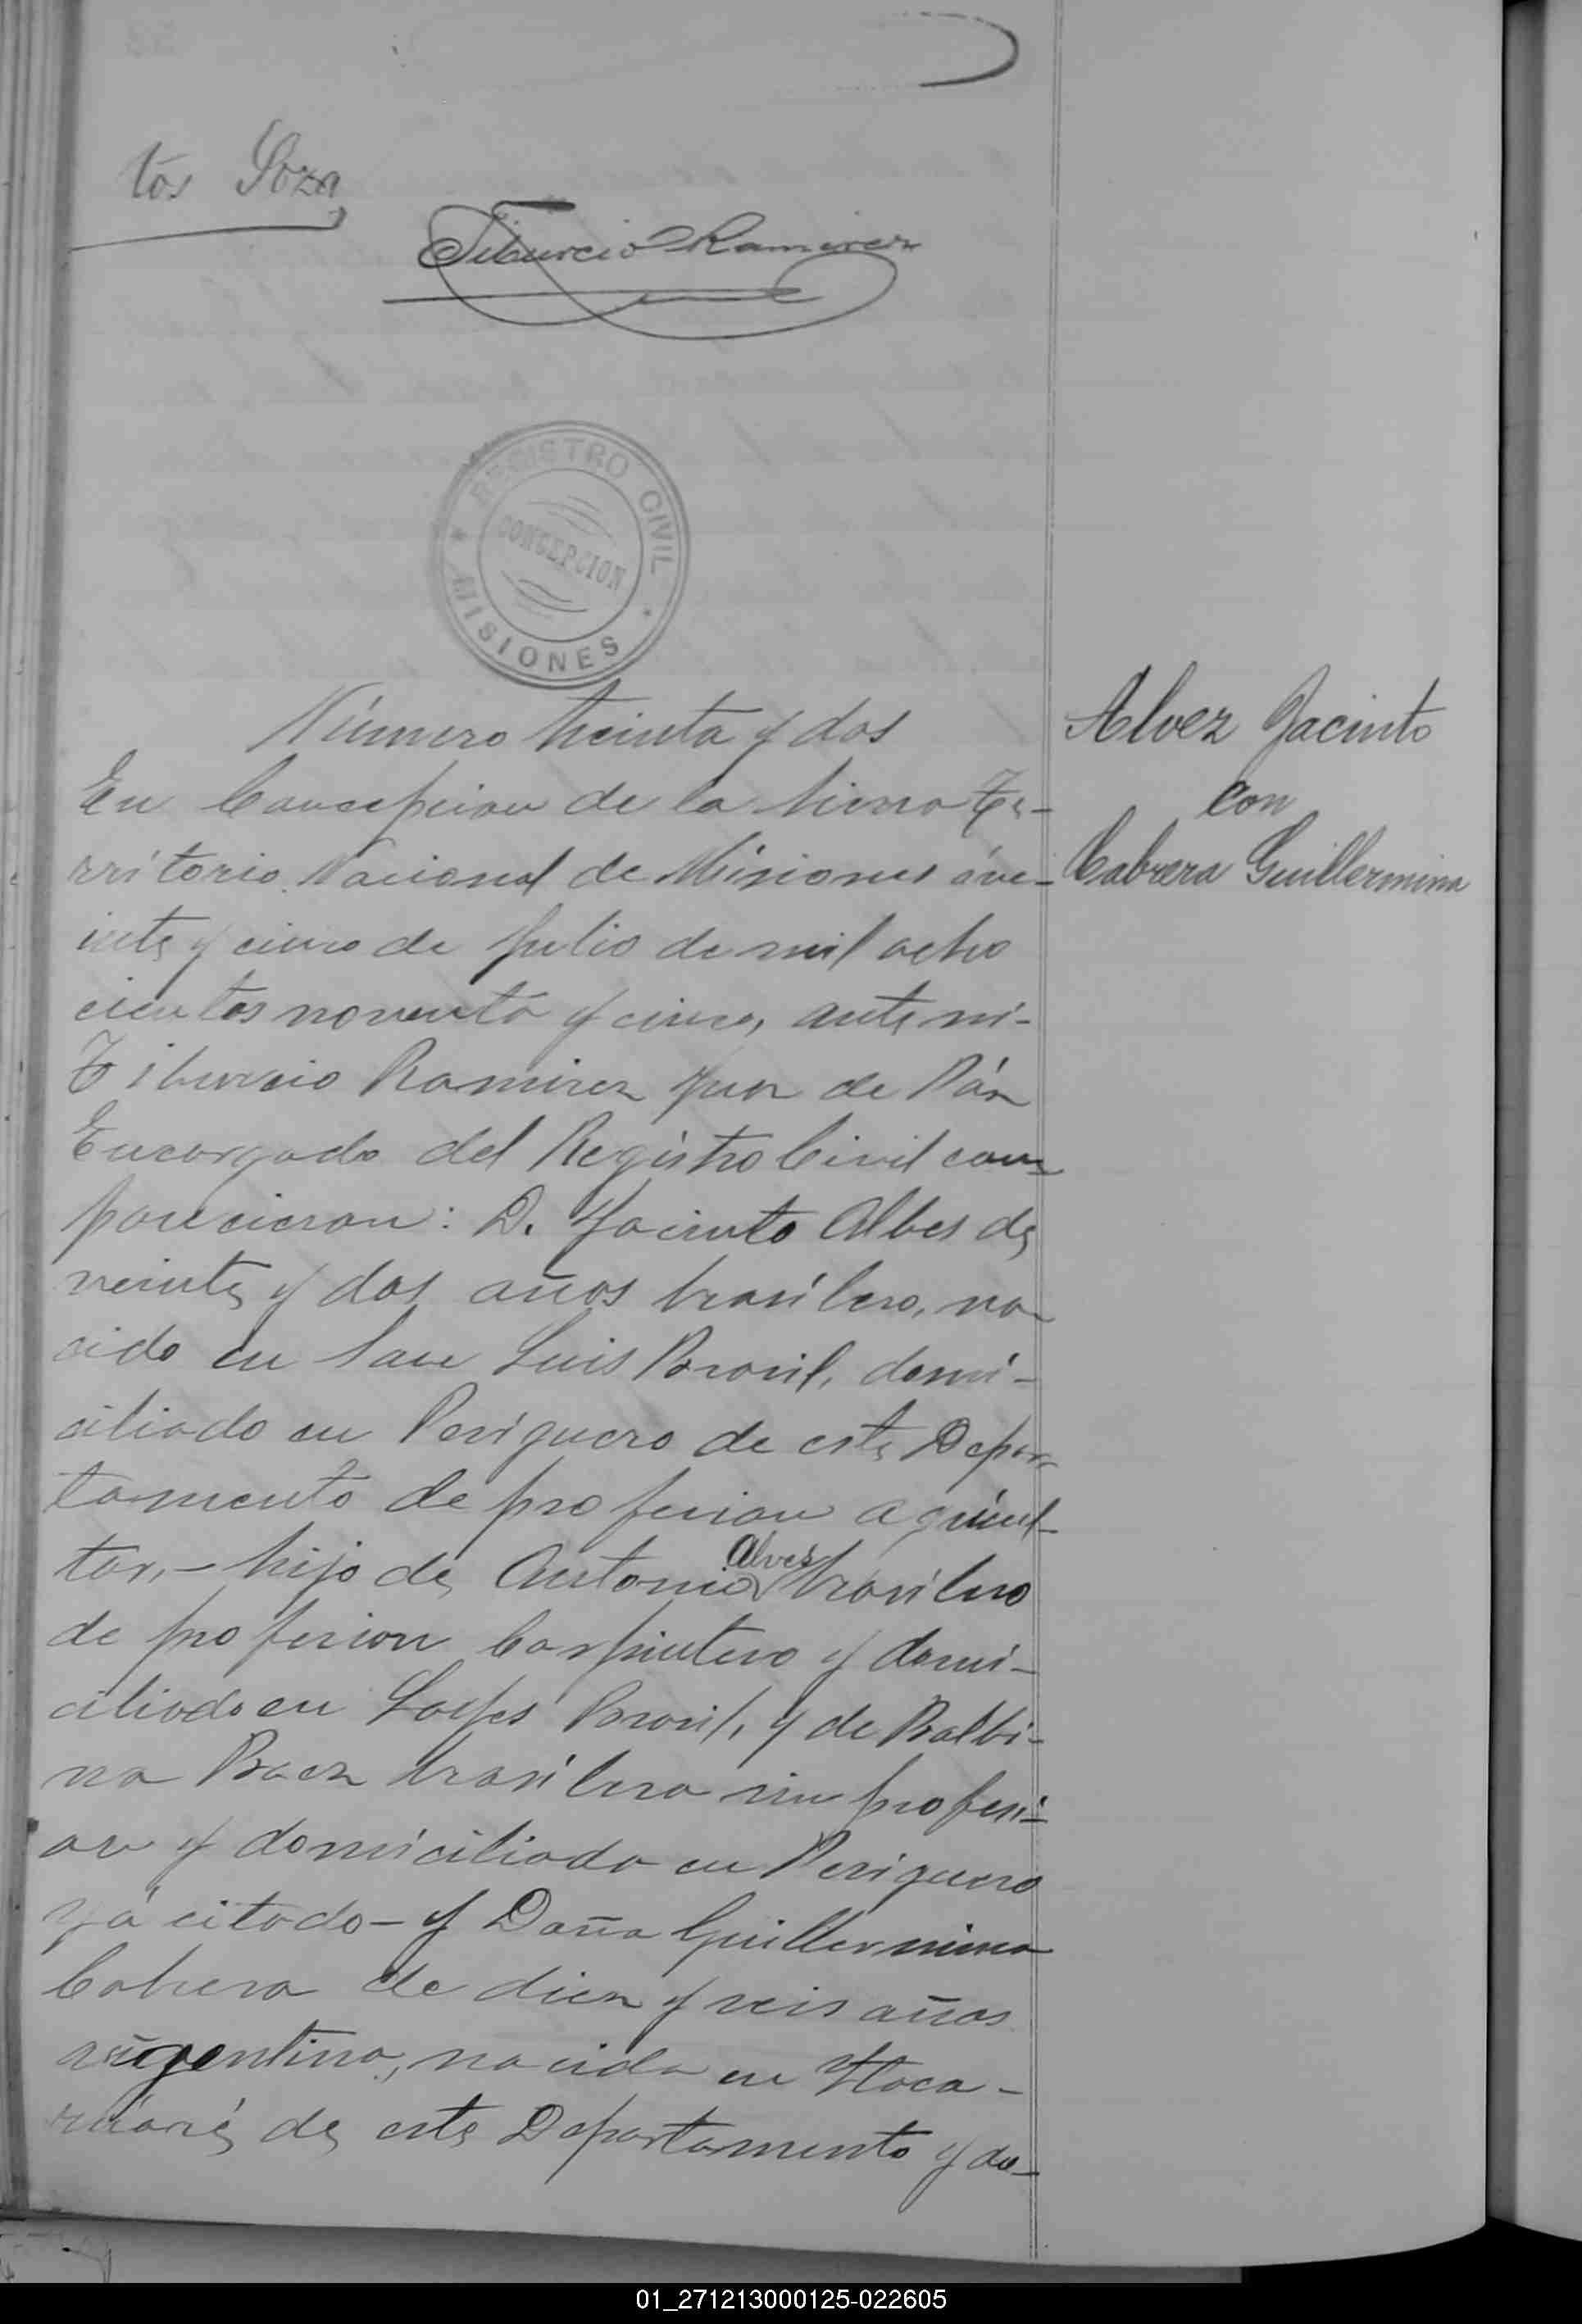 tos Soza
Tiburcio Ramirez
REGISTRO CIVIL
CONCEPCION
MISIONES
Número treinta y dos
En Concepcion de la Sierra Te-
rritorio Nacional de Misiones á ve-
inte y cinco de Julio de mil ocho
cientos noventa y cinco, ante mi-
Tiburcio Ramirez Juez de Páz
Encargado del Registro Civil com
parecieron: D. Jacinto Albes de
veinte y dos años brasilero, na
cido en San Luis Brasil, domi-
ciliado en Persiguero de este Depar
tamento de profesion agricul-
tor,- hijo de Antonio Alves brasilero
de profesion Carpintero y domi-
ciliado en Brasil, y de Balbi-
na Baez brasilera sin profesi-
on y domiciliada en Persiguero
yá citado- y Doña Guillermina
Cabrera de diez y seis años
argentina, nacida en Itaca-
ruaré de este Departamento y do-
Alvez Jacinto
con
Cabrera Guillermina
01_271213000125-022605